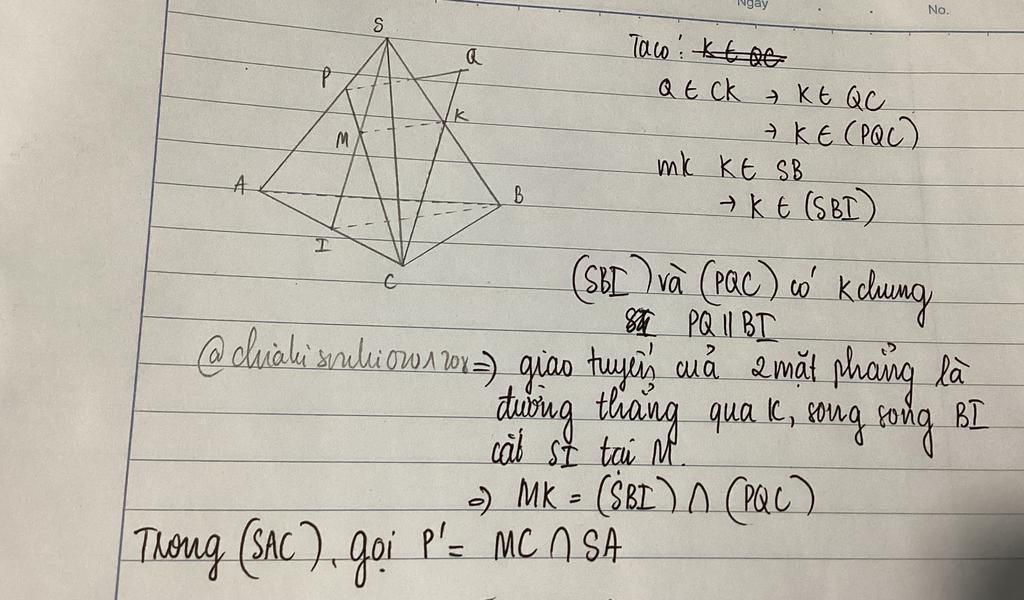 Ngày
No.
S
Q
P
K
M
A
B
I
C
Ta có: K ∈ QC
Q ∈ CK → K ∈ QC
→ K ∈ (PQC)
mk K ∈ SB
→ K ∈ (SBI)
(SBI) và (PQC) có K chung
PQ || BI
=) giao tuyến của 2 mặt phẳng là
đường thẳng qua K, song song BI
cắt SI tại M.
=) MK = (SBI) ∩ (PQC)
Trong (SAC), gọi P' = MC ∩ SA